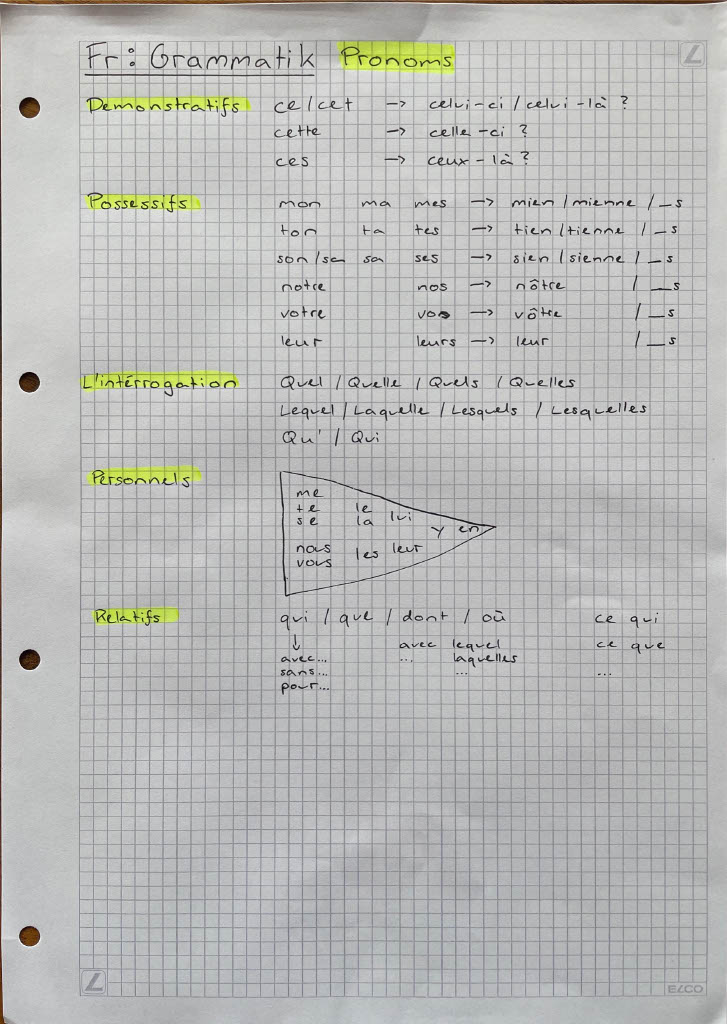 Fr: Grammatik Pronoms
Demonstratifs ce/cet -> celui-ci/celui-là ?
cette -> celle-ci ?
ces -> ceux-là ?
Possessifs mon ma mes -> mien/mienne /_s
ton ta tes -> tien/tienne /_s
son/sa sa ses -> sien/sienne /_s
notre nos -> nôtre /_s
votre vos -> vôtre /_s
leur leurs -> leur /_s
L'intérrogation Quel / Quelle / Quels / Quelles
Lequel / Laquelle / Lesquels / Lesquelles
Qu' / Qui
Personnels
me
te le lui
se la
y en
nous les leur
vous
Relatifs qui / que / dont / où ce qui
↓ avec lequel ce que
avec... ... laquelles
sans... ... ...
pour...
L
ELCO